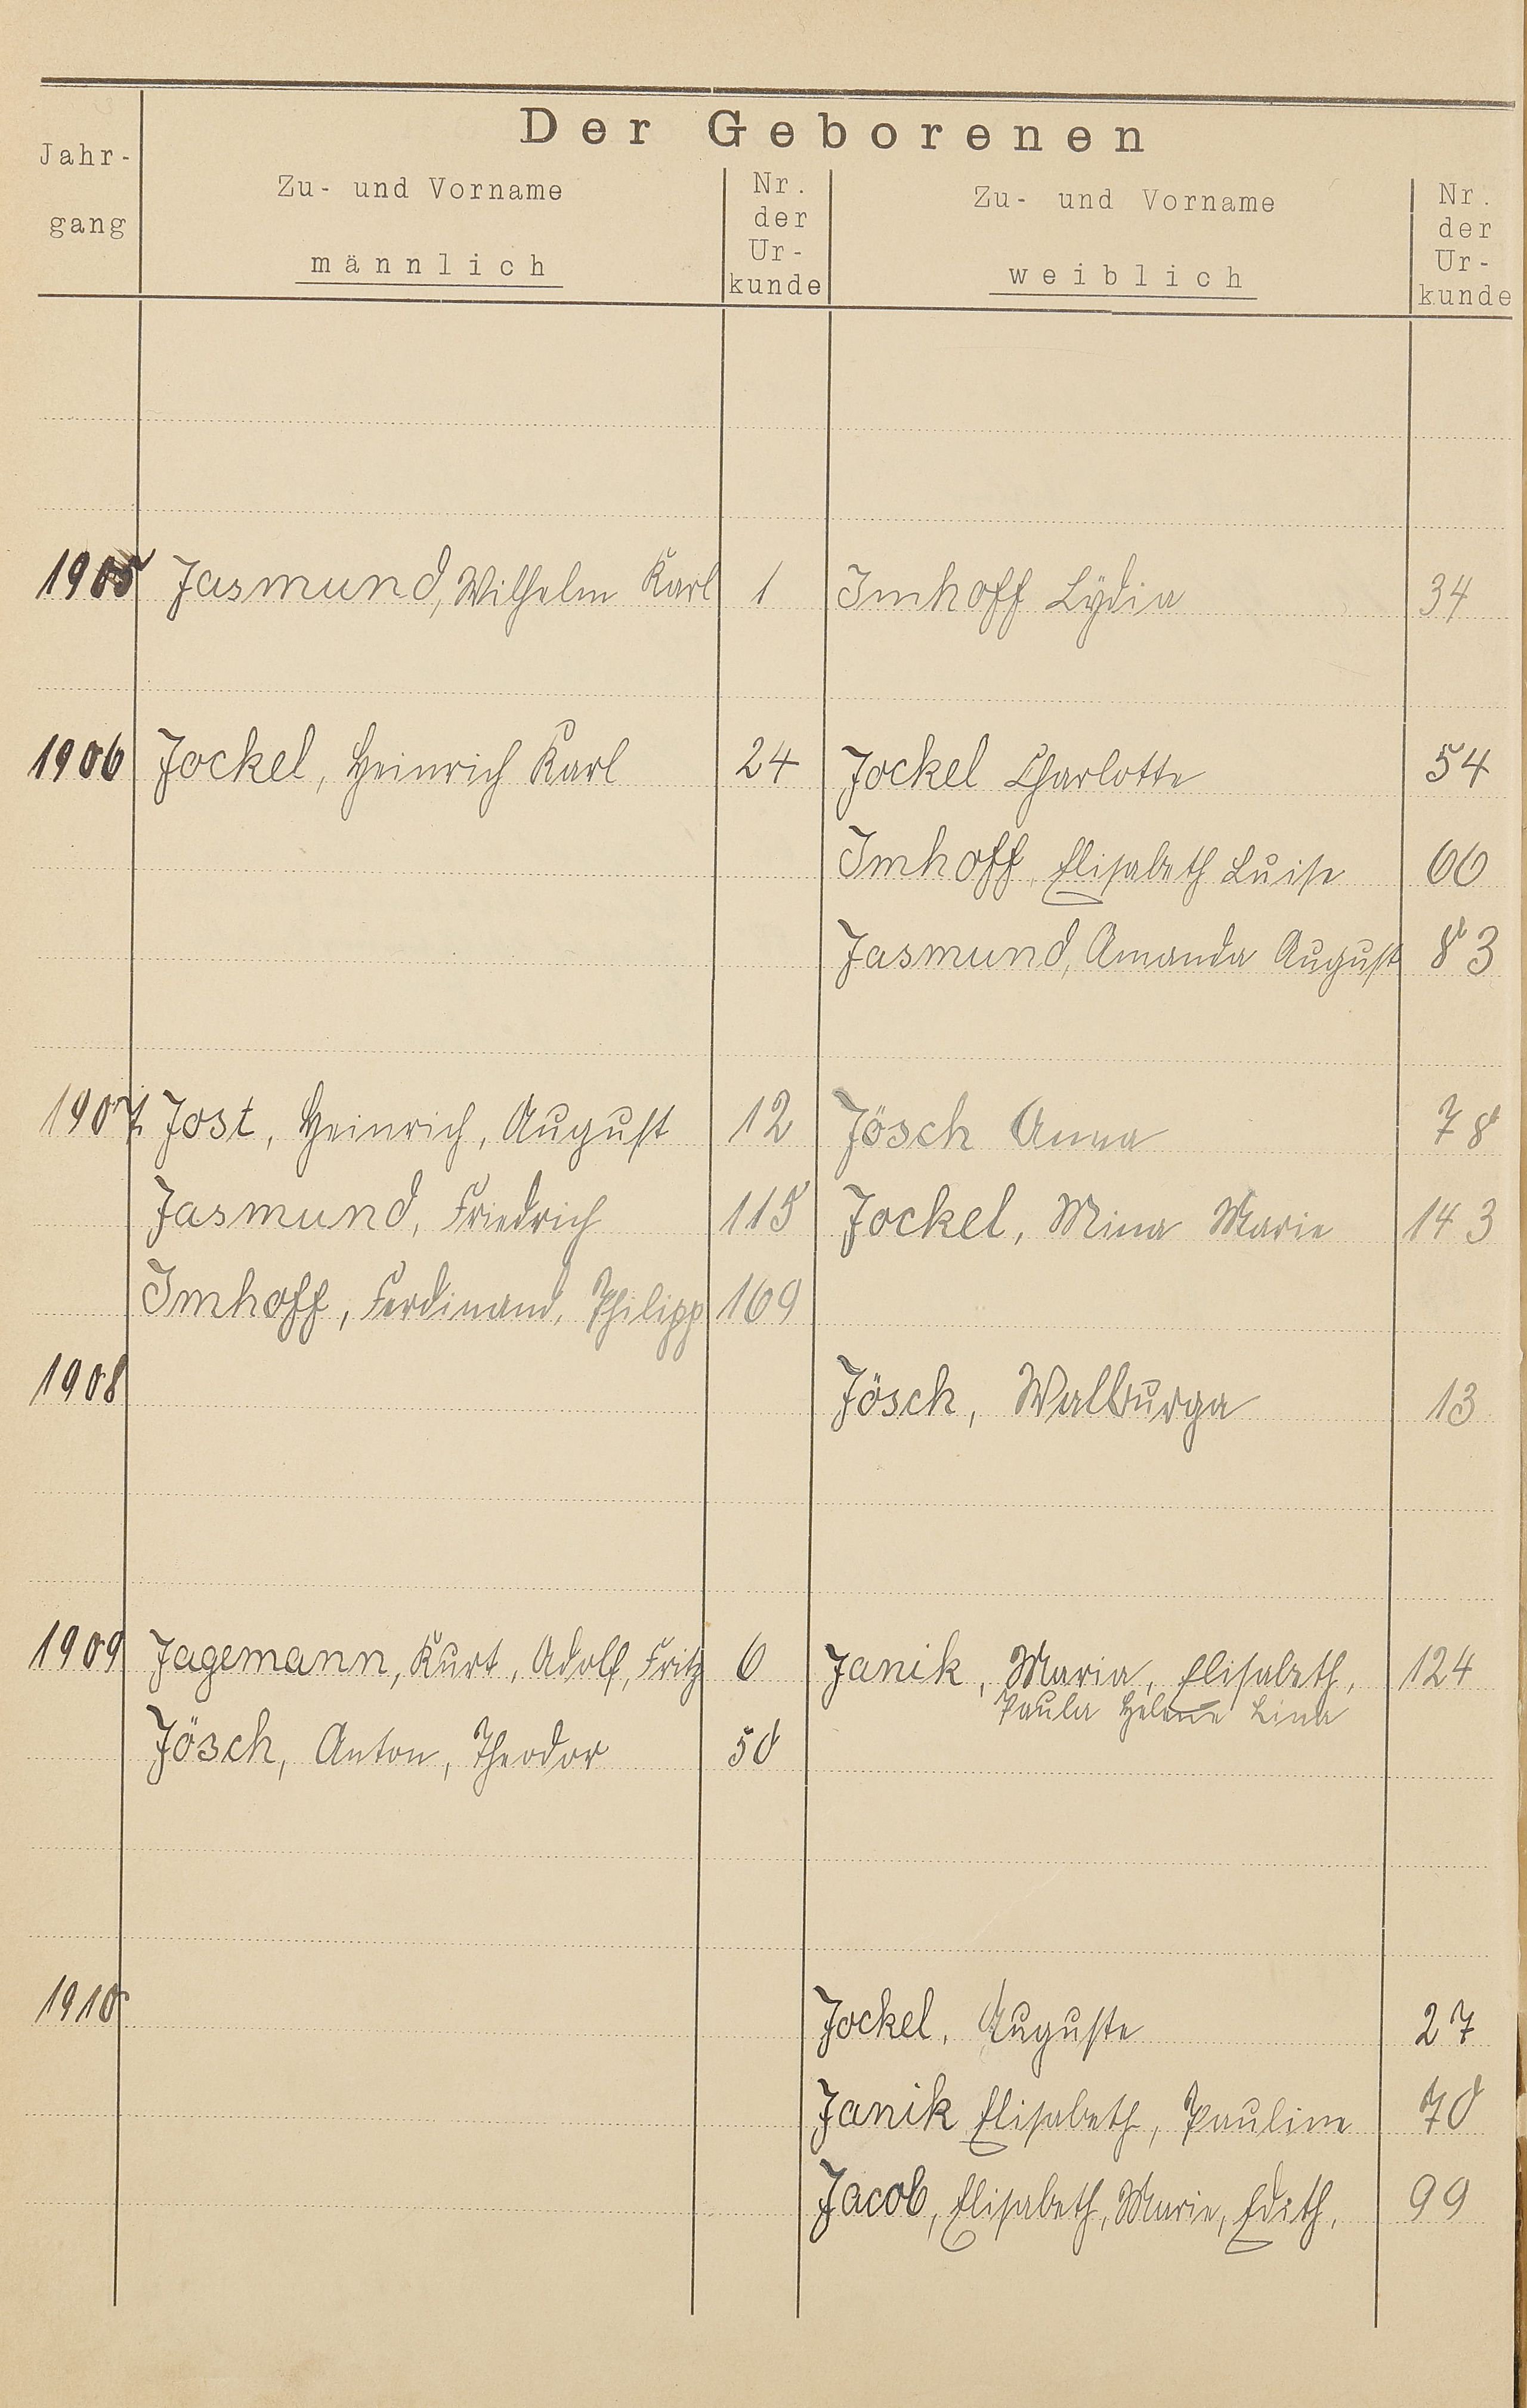 Der Geborenen
Jahr-
gang
Zu- und Vorname
männlich
Nr.
der
Ur-
kunde
Zu- und Vorname
weiblich
Nr.
der
Ur-
kunde
1905 Jasmund, Wilhelm Karl 1 Imhoff Lydia 34
1906 Jockel, Heinrich Karl 24 Jockel Charlotte 54
Imhoff, Elisabeth Luise 66
Jasmund, Amanda August 83
1907 Jost, Heinrich, August 12 Jösch Anna 78
Jasmund, Friedrich 115 Jockel, Mina Marie 143
Imhoff, Ferdinand, Philipp 169
1908 Jösch, Walburga 13
1909 Jagemann, Kurt, Adolf, Fritz 6 Janik, Maria, Elisabeth, 124
Paula Helene Lina
Jösch, Anton, Theodor 50
1910 Jockel, Auguste 27
Janik Elisabeth, Pauline 70
Jacob, Elisabeth, Marie, Edith, 99